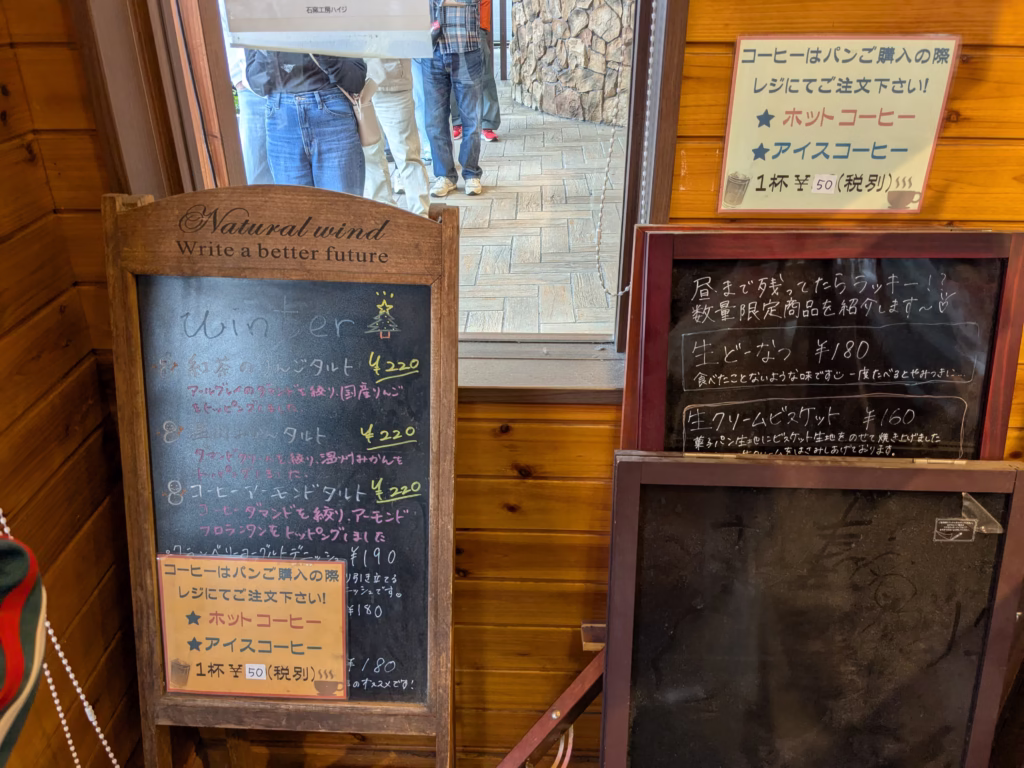 石窯工房ハイジ
コーヒーはパンご購入の際
レジにてご注文下さい!
★ ホットコーヒー
★アイスコーヒー
1杯 ¥50(税別)
Natural wind
Write a better future
Winter
紅茶のりんごタルト ¥220
国産りんご
をトッピングしました
タルト ¥220
ダマンドクリームを絞り、温州みかんを
トッピングしました
コーヒーアーモンドタルト ¥220
コーヒーダマンドを絞り、アーモンド
フロランタンをトッピングしました
クランベリーヨーグルトデニッシュ ¥190
引き立てる
ッシュです。
¥180
¥180
のオススメです!
コーヒーはパンご購入の際
レジにてご注文下さい!
★ ホットコーヒー
★アイスコーヒー
1杯 ¥50(税別)
昼まで残ってたらラッキー!?
数量限定商品を紹介します〜
生どーなつ ¥180
食べたことないような味です 一度たべるとやみつきに…
生クリームビスケット ¥160
菓子パン生地にビスケット生地をのせて焼き上げました
生クリームをはさみしあげております。